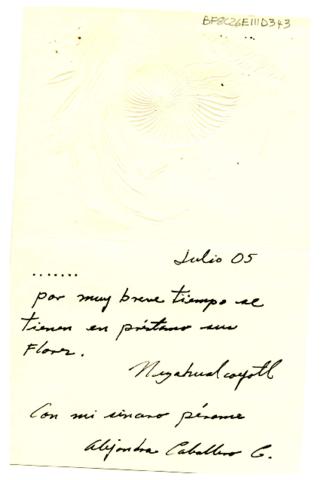 BF8C26E111D343
Julio 05
.......
por muy breve tiempo se
tienen en préstamo sus
Flores.
Nezahualcoyotl
Con mi sincero pésame
Alejandra Caballero C.